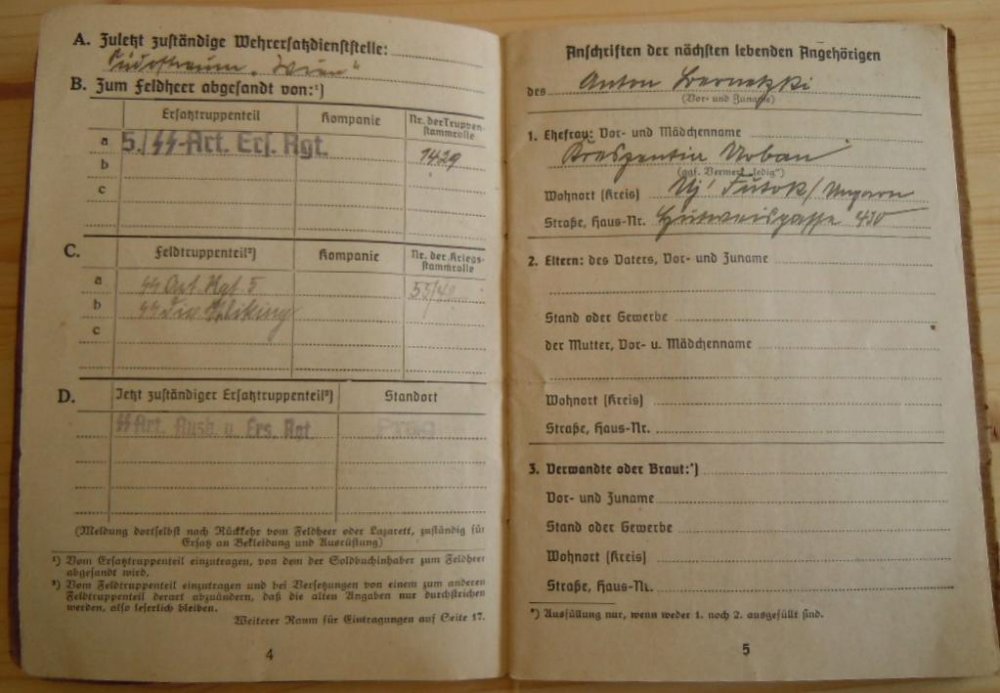 A. Zuletzt zuständige Wehrersatzdienststelle:
Südostraum „Wien“
B. Zum Feldheer abgesandt von:¹)
Ersatztruppenteil Kompanie Nr. der Truppen-
stammrolle
a 5./SS-Art. Ers. Rgt. 1429
b
c
C. Feldtruppenteil²) Kompanie Nr. der Kriegs-
stammrolle
a SS Art. Rgt. 5
b SS Div Wiking
c
D. Jetzt zuständiger Ersatztruppenteil²) Standort
SS Art. Ausb. u. Ers. Rgt Prag
(Meldung dortselbst nach Rückkehr vom Feldheer oder Lazarett, zuständig für
Ersatz an Bekleidung und Ausrüstung)
¹) Vom Ersatztruppenteil einzutragen, von dem der Soldbuchinhaber zum Feldheer
abgesandt wird.
²) Vom Feldtruppenteil einzutragen und bei Versetzungen von einem zum anderen
Feldtruppenteil derart abzuändern, daß die alten Angaben nur durchstrichen
werden, also leserlich bleiben.
Weiterer Raum für Eintragungen auf Seite 17.
4
Anschriften der nächsten lebenden Angehörigen
des Anton
(Vor- und Zuname)
1. Ehefrau: Vor- und Mädchenname
Kreszentia Urban
(ggf. Vermerk „ledig“)
Wohnort (Kreis) Uj Futok / Ungarn
Straße, Haus-Nr. Hutweidgasse 430
2. Eltern: des Vaters, Vor- und Zuname
Stand oder Gewerbe
der Mutter, Vor- u. Mädchenname
Wohnort (Kreis)
Straße, Haus-Nr.
3. Verwandte oder Braut:*)
Vor- und Zuname
Stand oder Gewerbe
Wohnort (Kreis)
Straße, Haus-Nr.
*) Ausfüllung nur, wenn weder 1. noch 2. ausgefüllt sind.
5